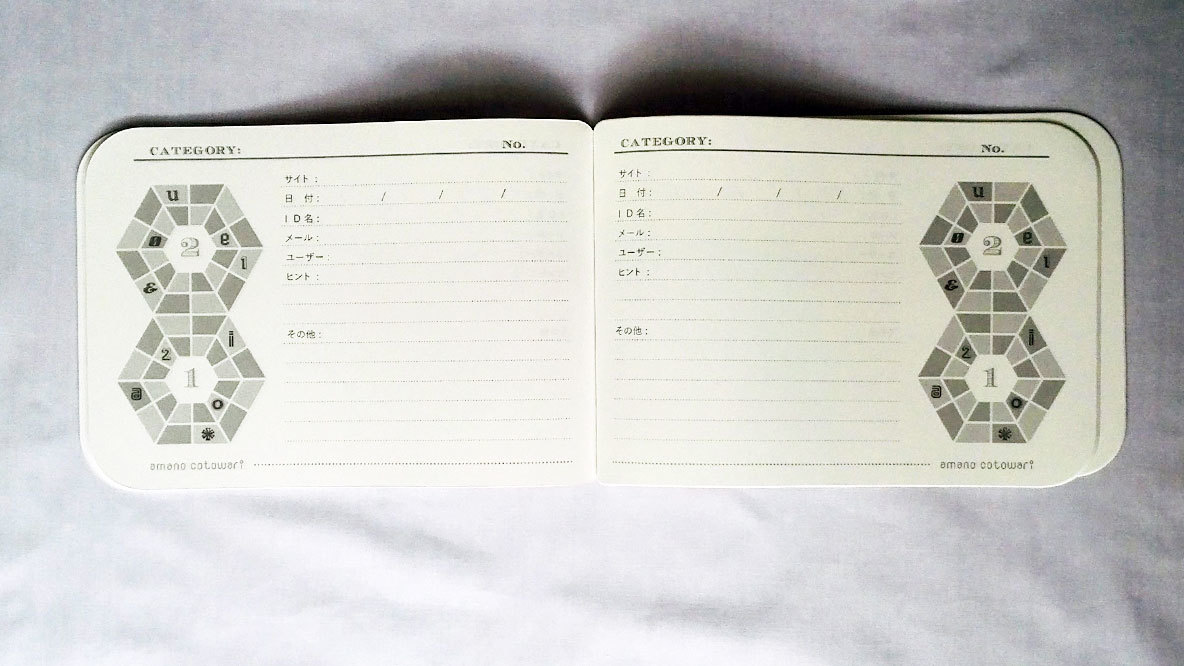 CATEGORY: No.
サイト：
日　付： / / /
ＩＤ名：
メール：
ユーザー：
ヒント：
その他：
u
a
2
i
&
i
2
1
a
o
*
amano cotowari
CATEGORY: No.
サイト：
日　付： / / /
ＩＤ名：
メール：
ユーザー：
ヒント：
その他：
u
a
2
i
&
i
2
1
a
o
*
amano cotowari